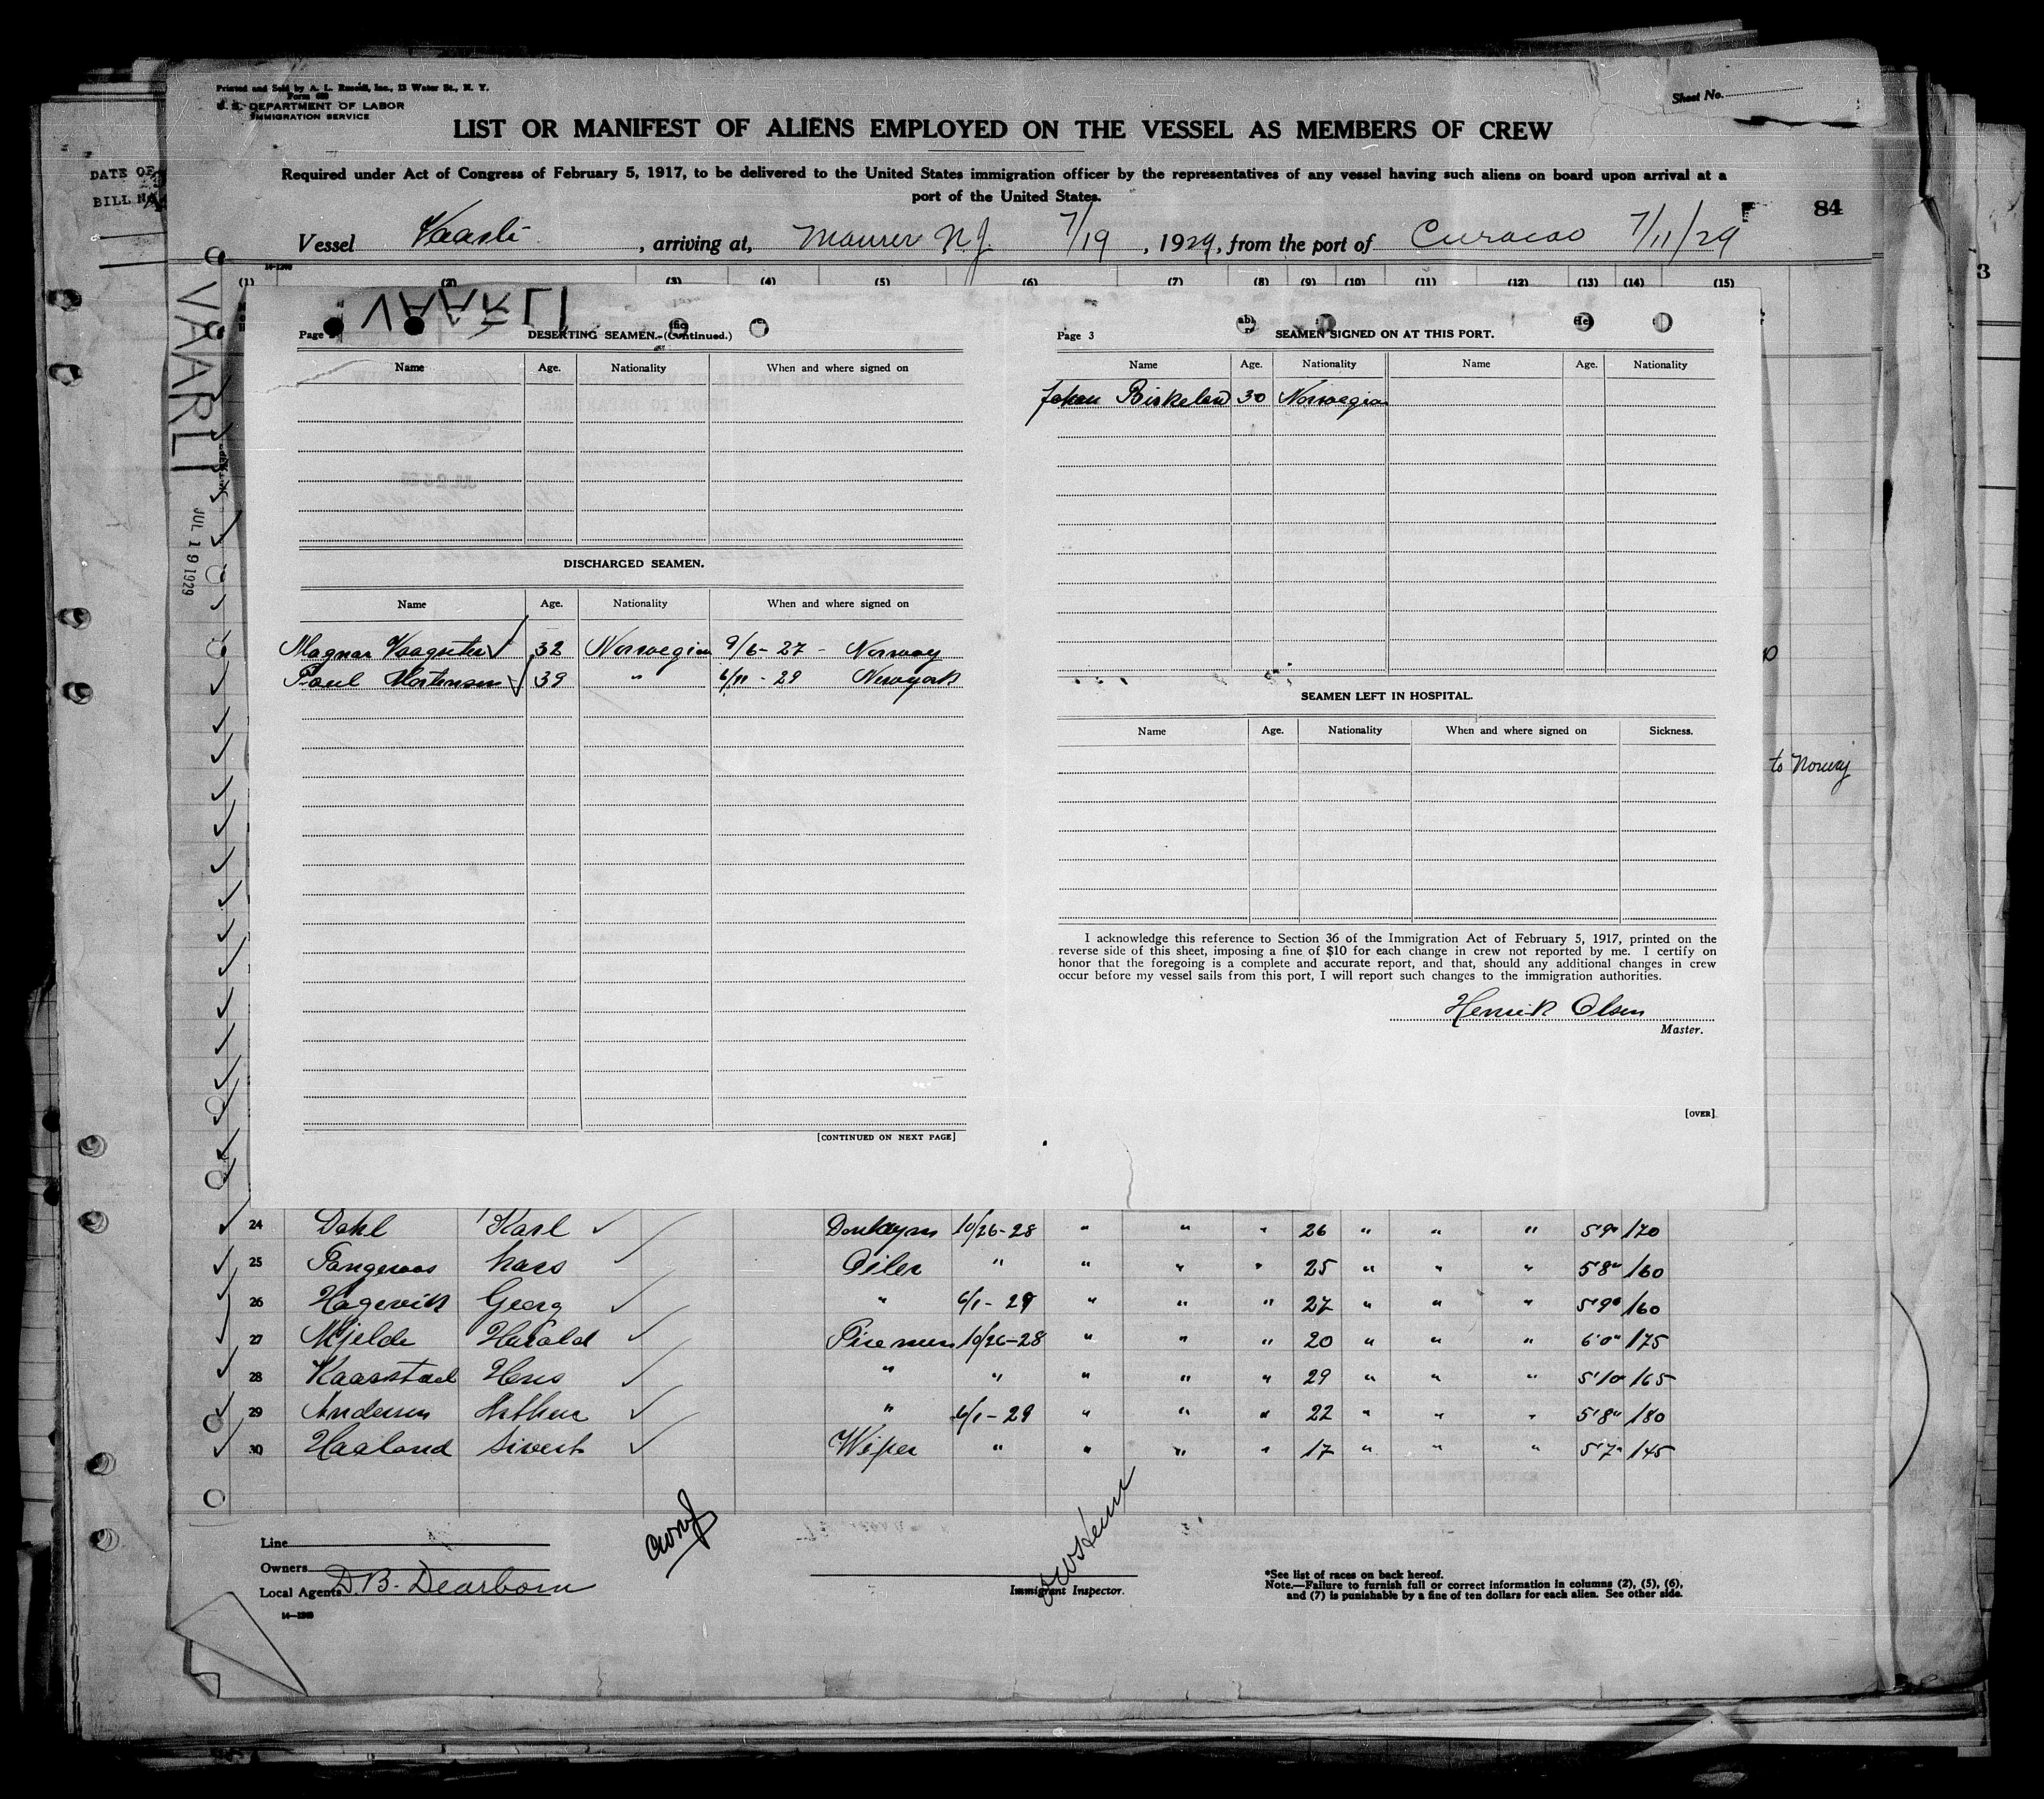 Printed and Sold by A. L. Russell, Inc., 13 Water St., N. Y.
Form 689
U. S. DEPARTMENT OF LABOR
IMMIGRATION SERVICE
Sheet No.
LIST OR MANIFEST OF ALIENS EMPLOYED ON THE VESSEL AS MEMBERS OF CREW
Required under Act of Congress of February 5, 1917, to be delivered to the United States immigration officer by the representatives of any vessel having such aliens on board upon arrival at a
port of the United States.
DATE OF
BILL NO
84
Vessel Vaarli, arriving at, Maurer N.J. 7/19, 1929, from the port of Curacao 7/11/29
14-1240
(1) (2) (3) (4) (5) (6) (7) (8) (9) (10) (11) (12) (13) (14) (15)
3
VAARLI
JUL 19 1929
VAARLI
Page
DESERTING SEAMEN.-(Continued.)
Name Age. Nationality When and where signed on
DISCHARGED SEAMEN.
Name Age. Nationality When and where signed on
Magnar Vaagseter 32 Norwegian 9/6-27 - Norway
Paul Mortensen 39 " 6/11-29 Newyork
[CONTINUED ON NEXT PAGE]
Page 3
SEAMEN SIGNED ON AT THIS PORT.
Name Age. Nationality Name Age. Nationality
Johan Birkeland 30 Norwegian
SEAMEN LEFT IN HOSPITAL.
Name Age. Nationality When and where signed on Sickness.
I acknowledge this reference to Section 36 of the Immigration Act of February 5, 1917, printed on the
reverse side of this sheet, imposing a fine of $10 for each change in crew not reported by me. I certify on
honor that the foregoing is a complete and accurate report, and that, should any additional changes in crew
occur before my vessel sails from this port, I will report such changes to the immigration authorities.
Henrik Olsen
Master.
[OVER]
to Norway
24 Dahl Karl Donkeym 10/26-28 " " " 26 " " " 5'9" 170
25 Tangeraas Lars Oiler " " " " 25 " " " 5'8" 160
26 Hagevik Georg " 6/1-29 " " " 27 " " " 5'9" 160
27 Mjelde Harald Firemen 10/26-28 " " " 20 " " " 6'0" 175
28 Kaarstad Hans " " " " " 29 " " " 5'10" 165
29 Andersen Arthur " 6/1-29 " " " 22 " " " 5'8" 180
30 Haaland Sivert Wiper " " " " 17 " " " 5'7" 145
Line
Owners
Local Agents D.B. Dearborn
14-1240
Immigrant Inspector.
*See list of races on back hereof.
Note.—Failure to furnish full or correct information in columns (2), (5), (6),
and (7) is punishable by a fine of ten dollars for each alien. See other side.